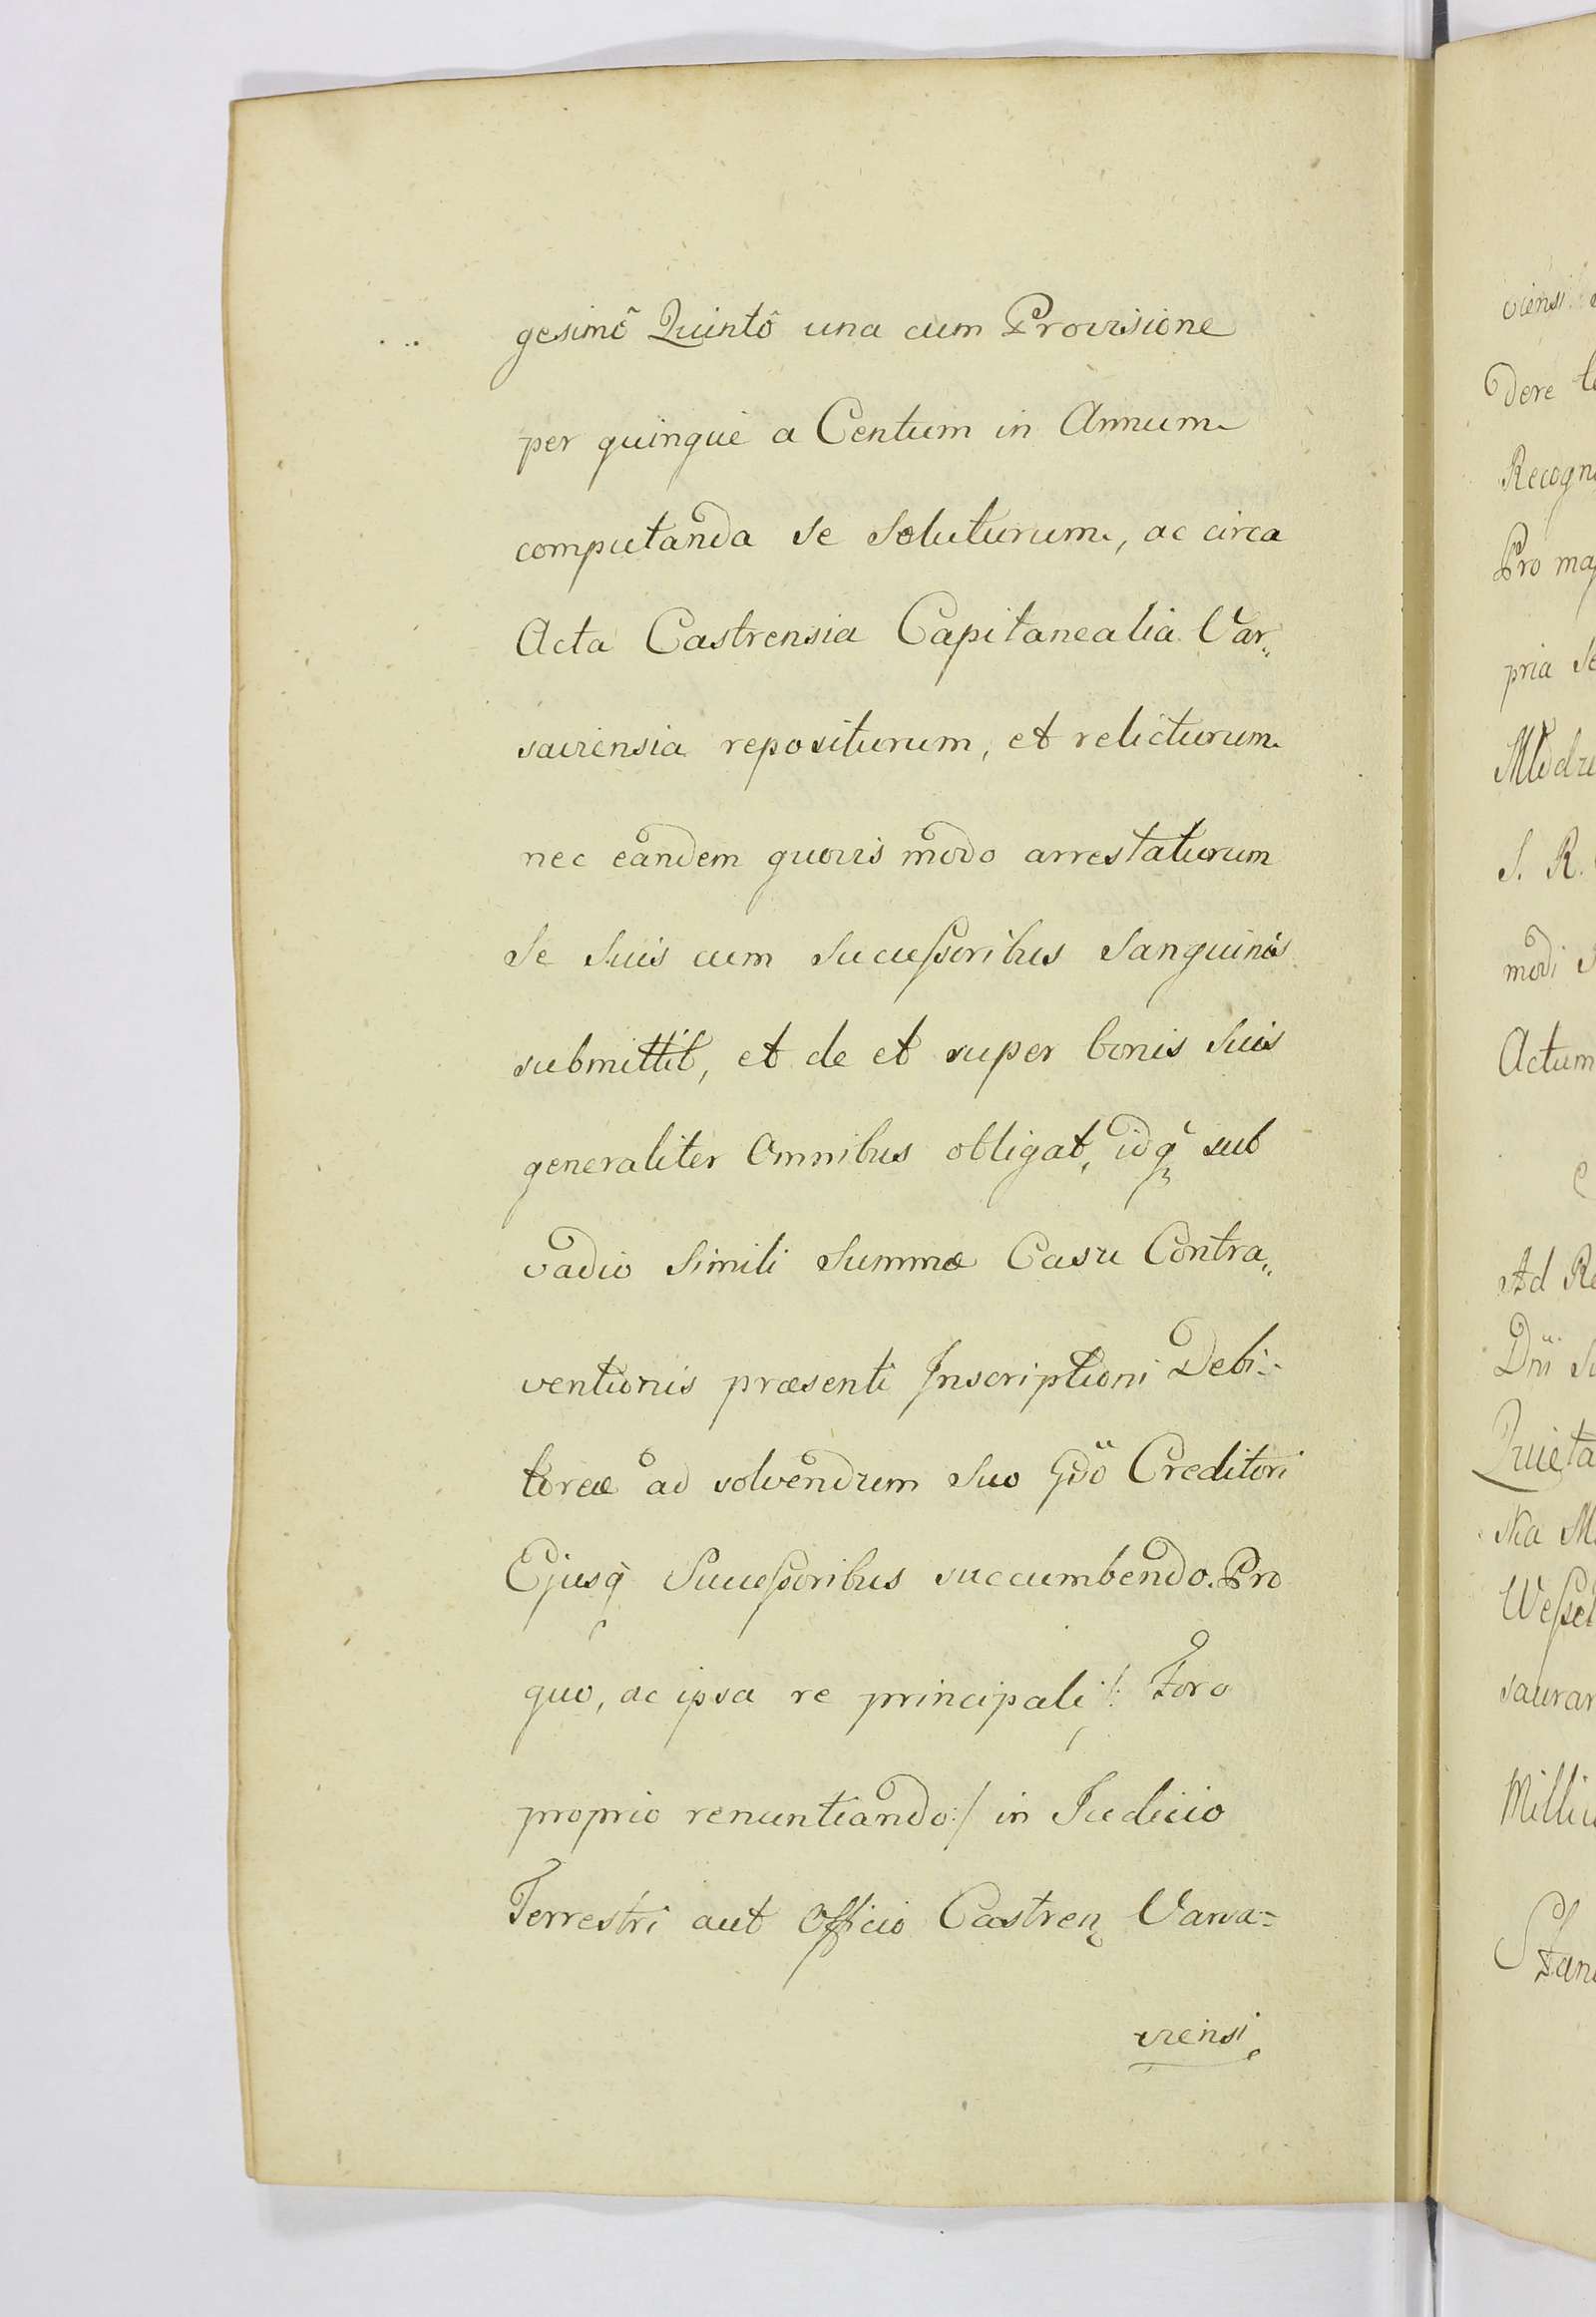 gesimô Quintô una cum Provisione
per quinque a Centum in Annum
computanda se soluturum, ac circa
Acta Castrensia Capitanealia Var„
saviensia repositurum, et relicturum
nec eandem quovis modo arrestaturum
Se suis cum Successoribus Sanguinis
submittit, et de et super bonis suis
generaliter Omnibus obligat, idq̃ sub
vadio Simili Summæ Casu Contra„
ventionis præsenti Inscriptioni Debi=
toreæ ad solvendum suo Gdõ Creditori
Ejusq̃ Successoribus succumbendo. Pro
quo, ac ipsa re principali /: Foro
proprio renuntiando :/ in Judicio
Terrestri aut Officio Castren Varsa=
viensi
viensi
dere
Recogn
Pro ma
pria se
Mlodzi
S. R.
modi
Actum
Ad Re
Dni
Quieta
ska M
Wessel
saurar
Milli
Stan